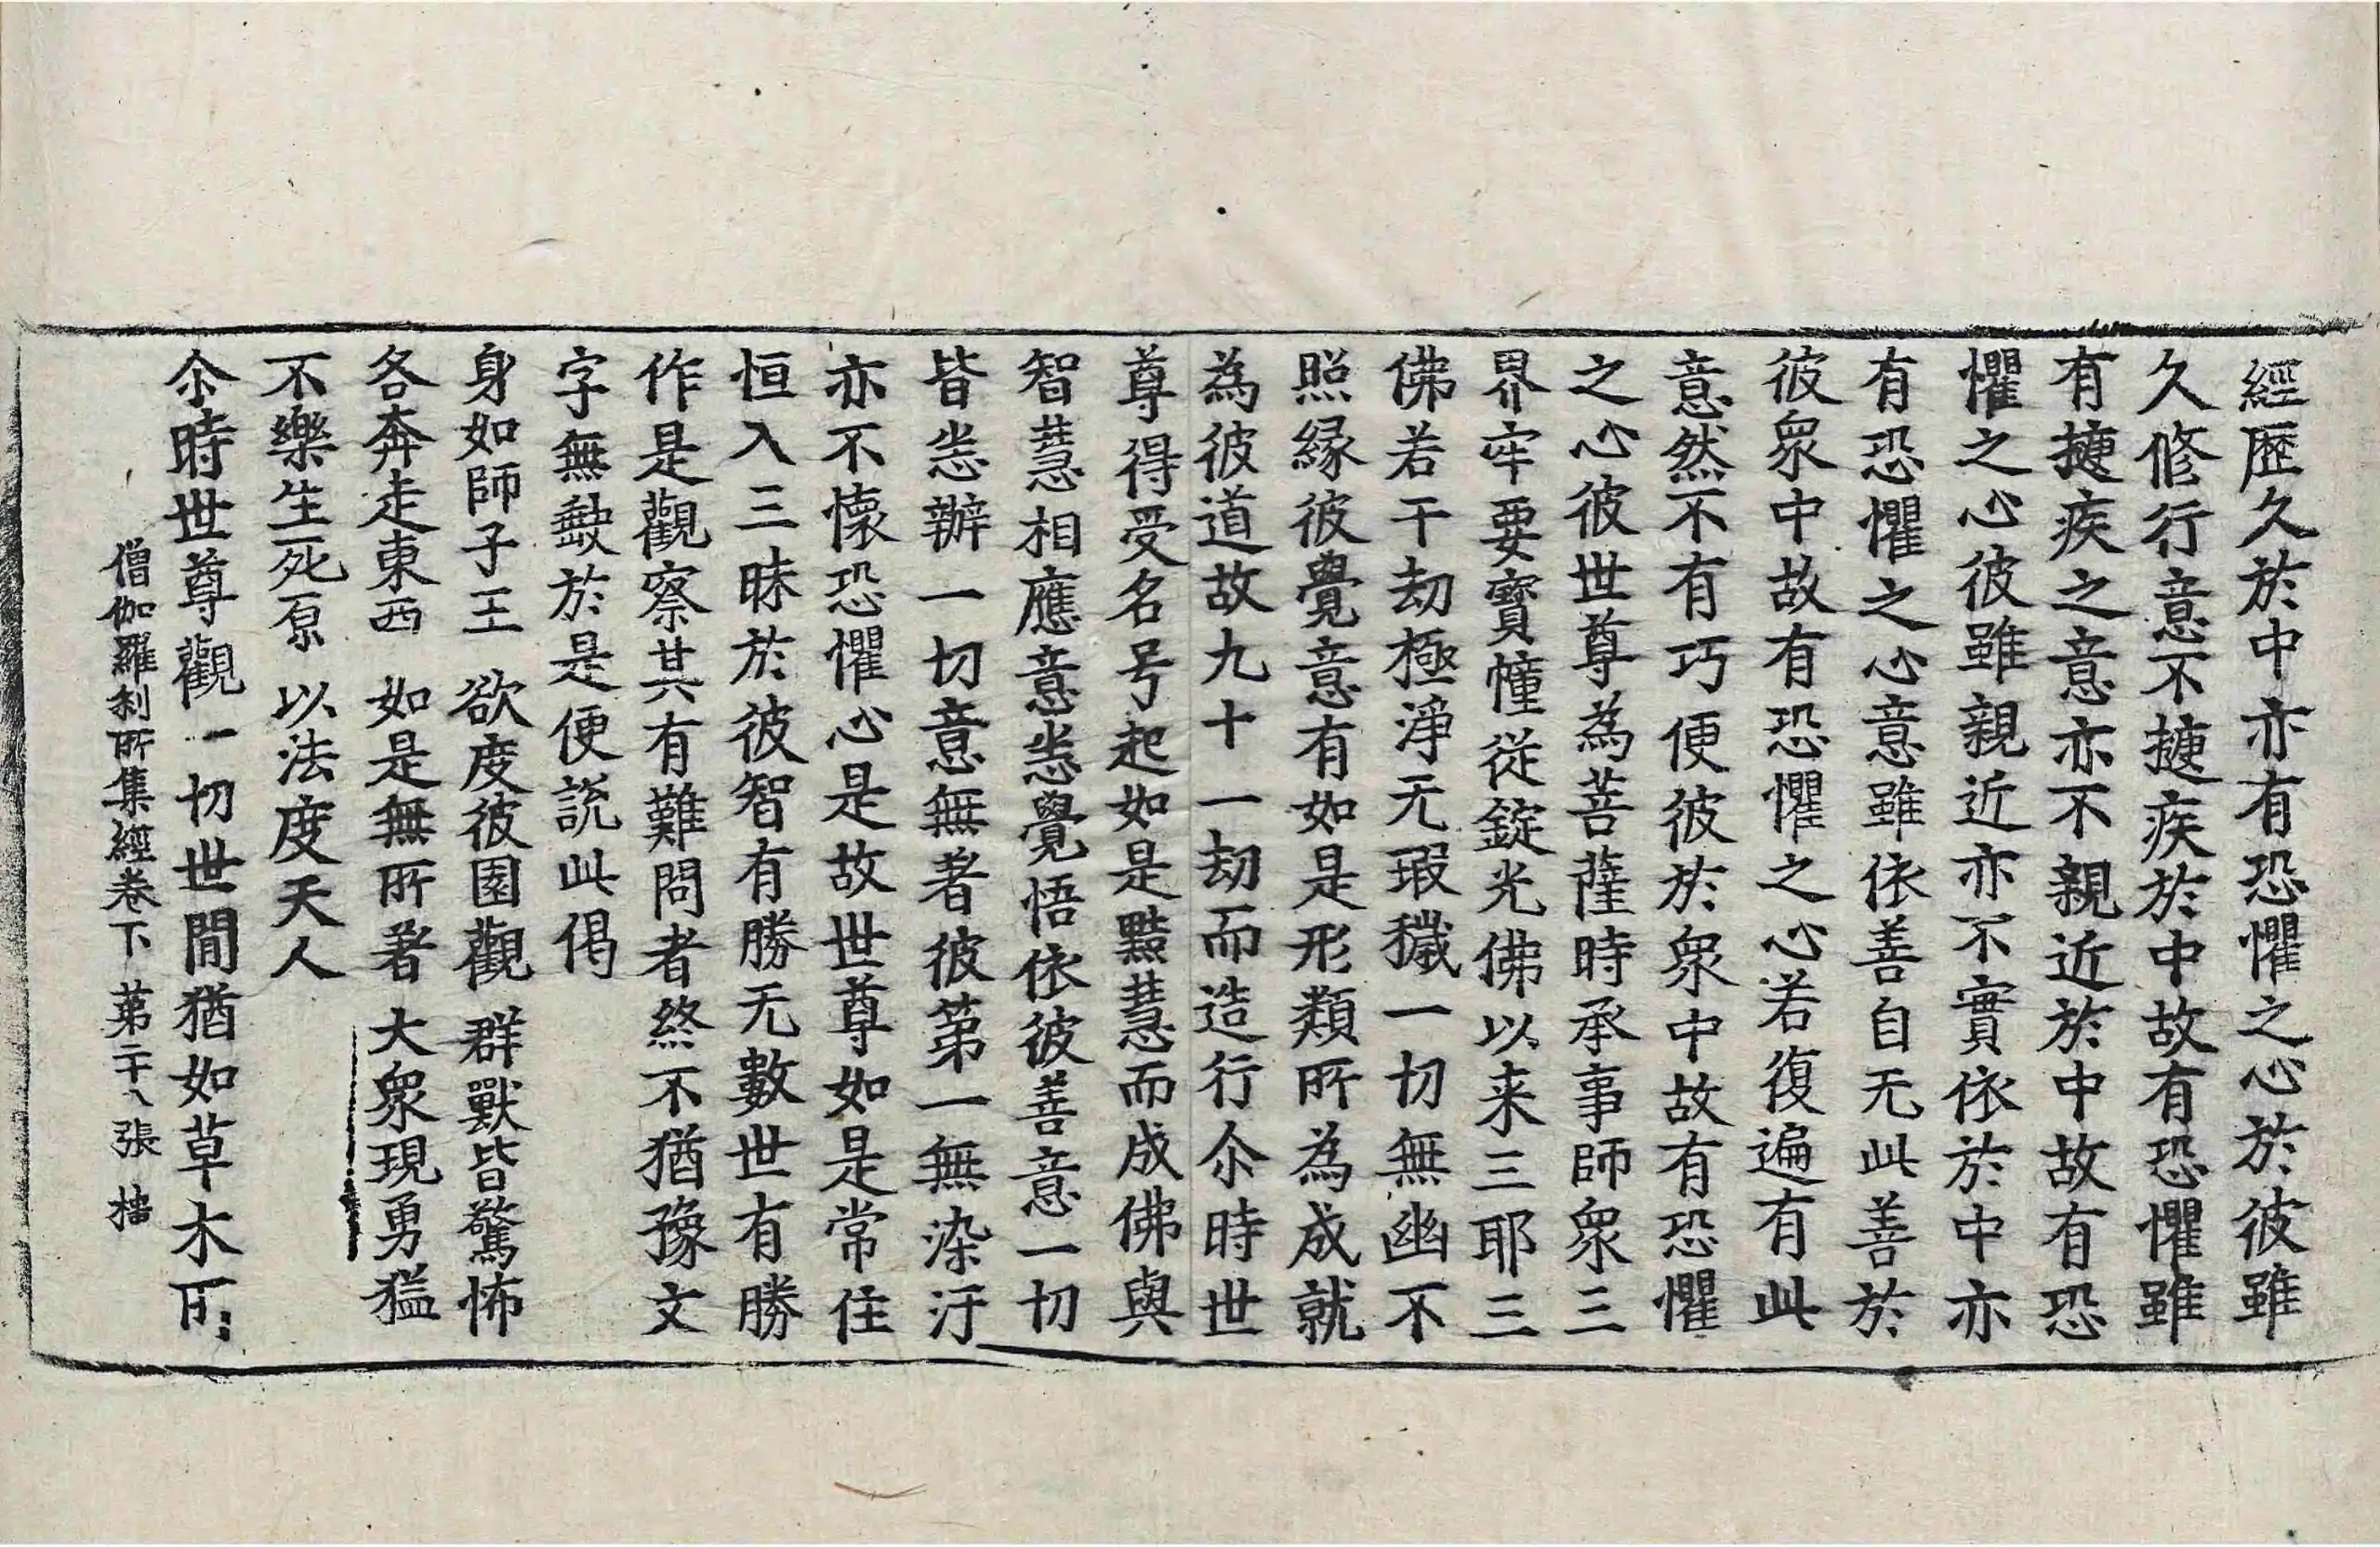 經歷久於中亦有恐懼之心於彼雖
久修行意不揵疾於中故有恐懼雖
有揵疾之意亦不親近於中故有恐
懼之心彼雖親近亦不實依於中亦
有恐懼之心意雖依善自无此善於
彼衆中故有恐懼之心若復遍有此
意然不有巧便彼於衆中故有恐懼
之心彼世尊為菩薩時承事師衆三
界牢要寶幢從錠光佛以来三耶三
佛若干劫極淨无瑕穢一切無幽不
照緣彼覺意有如是形類所為成就
為彼道故九十一劫而造行尒時世
尊得受名号起如是黠慧而成佛與
智慧相應意悉覺悟依彼善意一切
皆悉辦一切意無著彼第一無染汙
亦不懷恐懼心是故世尊如是常住
恒入三昧於彼智有勝无數世有勝
作是觀察其有難問者終不猶豫文
字無缺於是便說此偈
身如師子王 欲度彼園觀 群獸皆驚怖
各奔走東西 如是無所著 大衆現勇猛
不樂生死原 以法度天人
尒時世尊觀一切世間猶如草木
僧伽羅刹所集經卷下 第二十八張